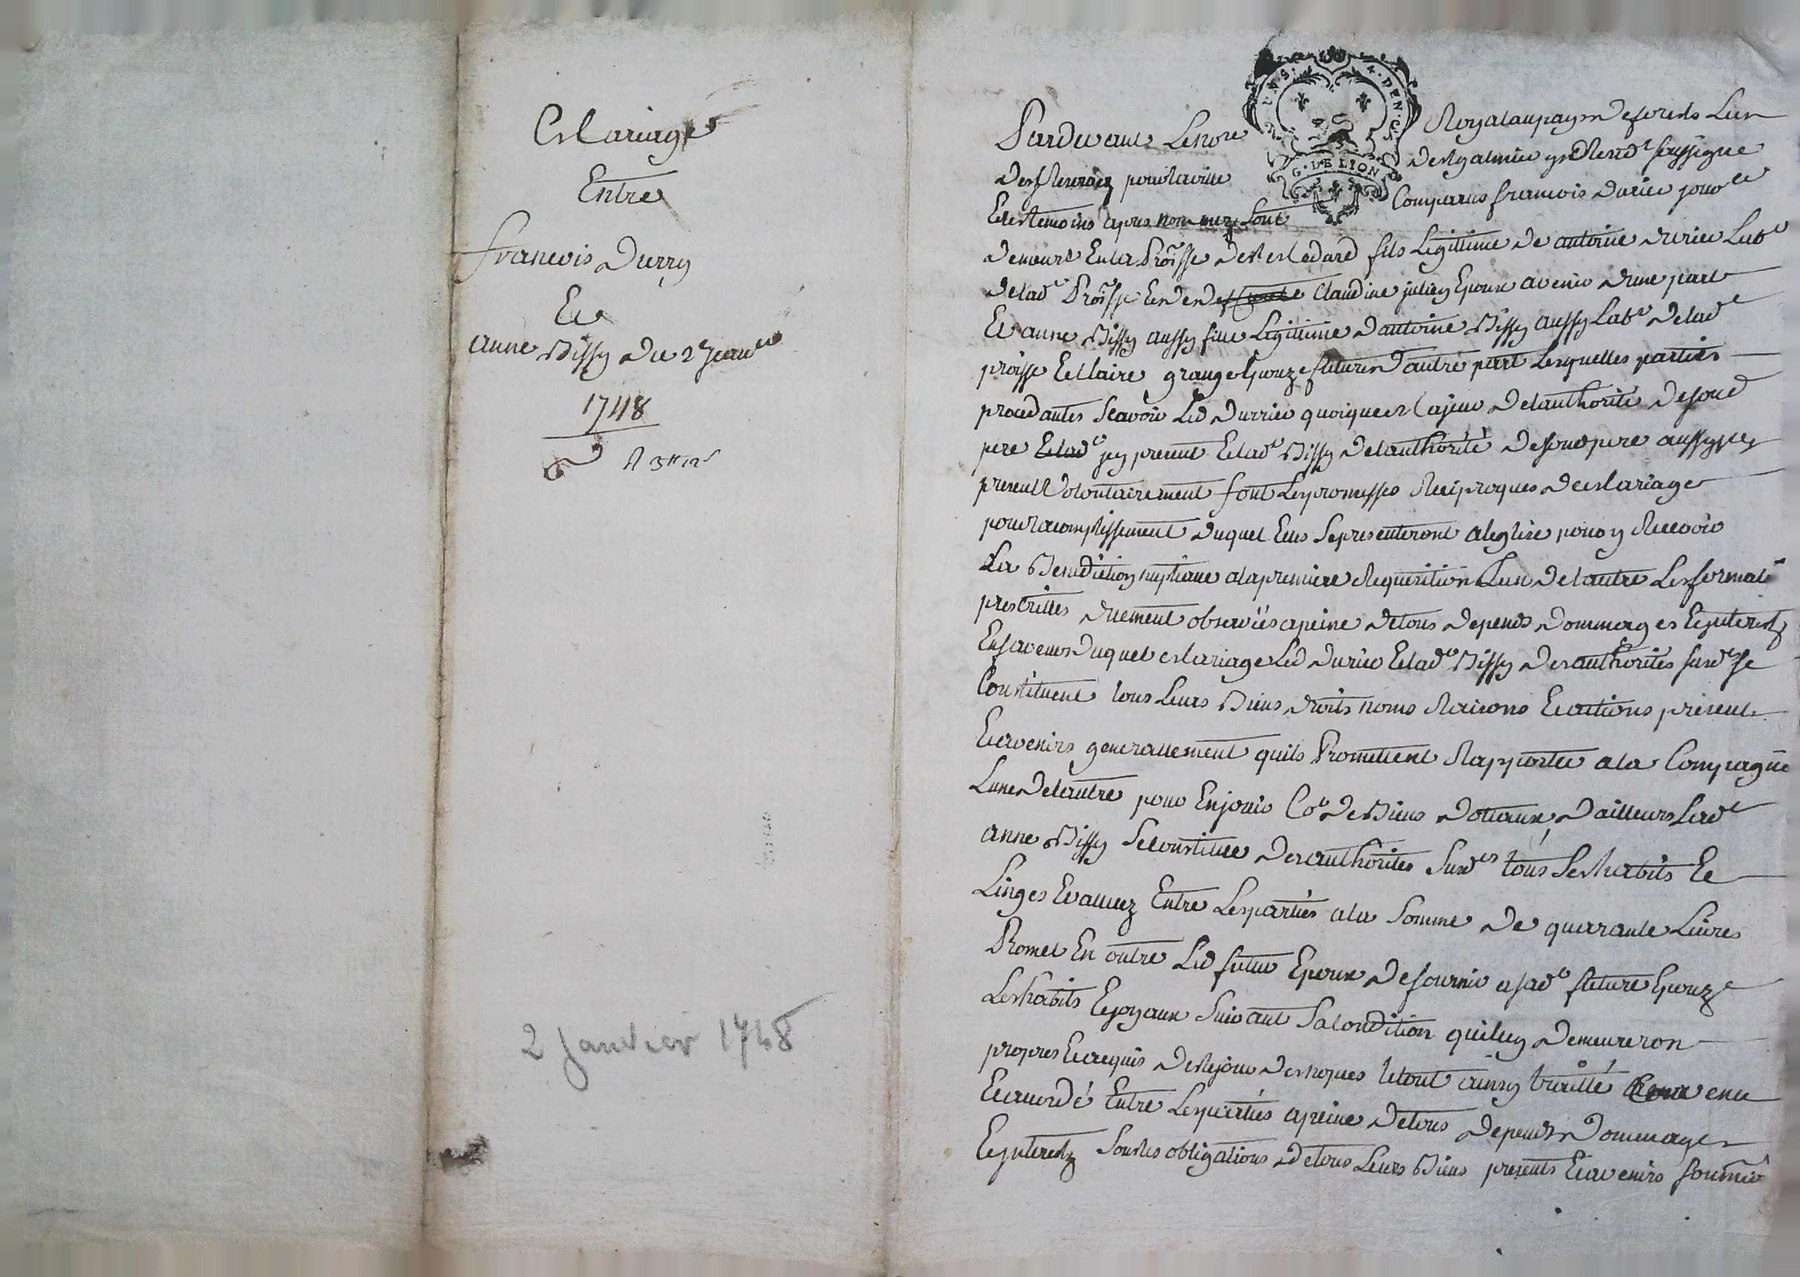 Mariage
Entre
francois Durry
Et
anne Bissy du 2e Jeanv
1748
2 Janvier 1748
G. DE LION
Pardevant Le no.re Royal au pays de forests L'un
des pour la ville de St galmier soussigné
Et tesmoins apres nommez sont Comparus francois durieu
demeurt En la Proisse de St Medard fils Legittime de antoine durieu Lab.r
de lad.e Proisse Et de Claudine julien Epoux avenir dune part
Et anne Bissy aussy fille Legittime dantoine Bissy aussy Lab.r de lad.e
proisse Et Claire grange Epouze future d'autre part Lesquelles parties
procedantes Scavoir Led durrieu quoique Majeur de lauthorité de son d
pere jcy present Et lad.e Bissy de lauthorité de sond pere aussy jcy
present Volontairement font Les promesses Reciproques de Mariage
pour lacomplissement duquel Eux se presenteront a leglize pour y Recevoir
La Benediction nuptiale a la premiere Requisition Lun de lautre Les formalés
prescrittes duement observées a peine de tous depends dommages Et jnterestz
En faveur duquel Mariage Led durieu Et lad.e Bissy des authorités susd.es se
Constituent tous Leurs Biens droits noms Raisons Et actions present
Et avenirs generallement quils Promettent Rapporter a la Compagnie
Lun de lautre pour En jouir Co.e de Biens dottaux, dailleurs Lad.e
anne Bissy se constitue des authorités susd.es tous ses habits Et
Linges Evaluez Entre Les parties a la somme de quarante Livres
Promet En outre Led futur Epoux de fournir a sad.e future Epouze
Les habits Et joyaux suivant sa condition qui luy demeureron
propres Et acquis des le jour des nopces le tout ainsy traitté Convenu
Et accordé Entre Les parties a peine de tous depends Dommages
Et jnterestz sous les obligations de tous Leurs Biens presents Et avenirs soumis